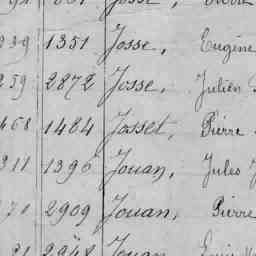 1351 Josse, Eugène
259 2872 Josse, Julien
468 1484 Josset, Pierre
311 1396 Jouan, Jules
2909 Jouan, Pierre
2948 Jouan